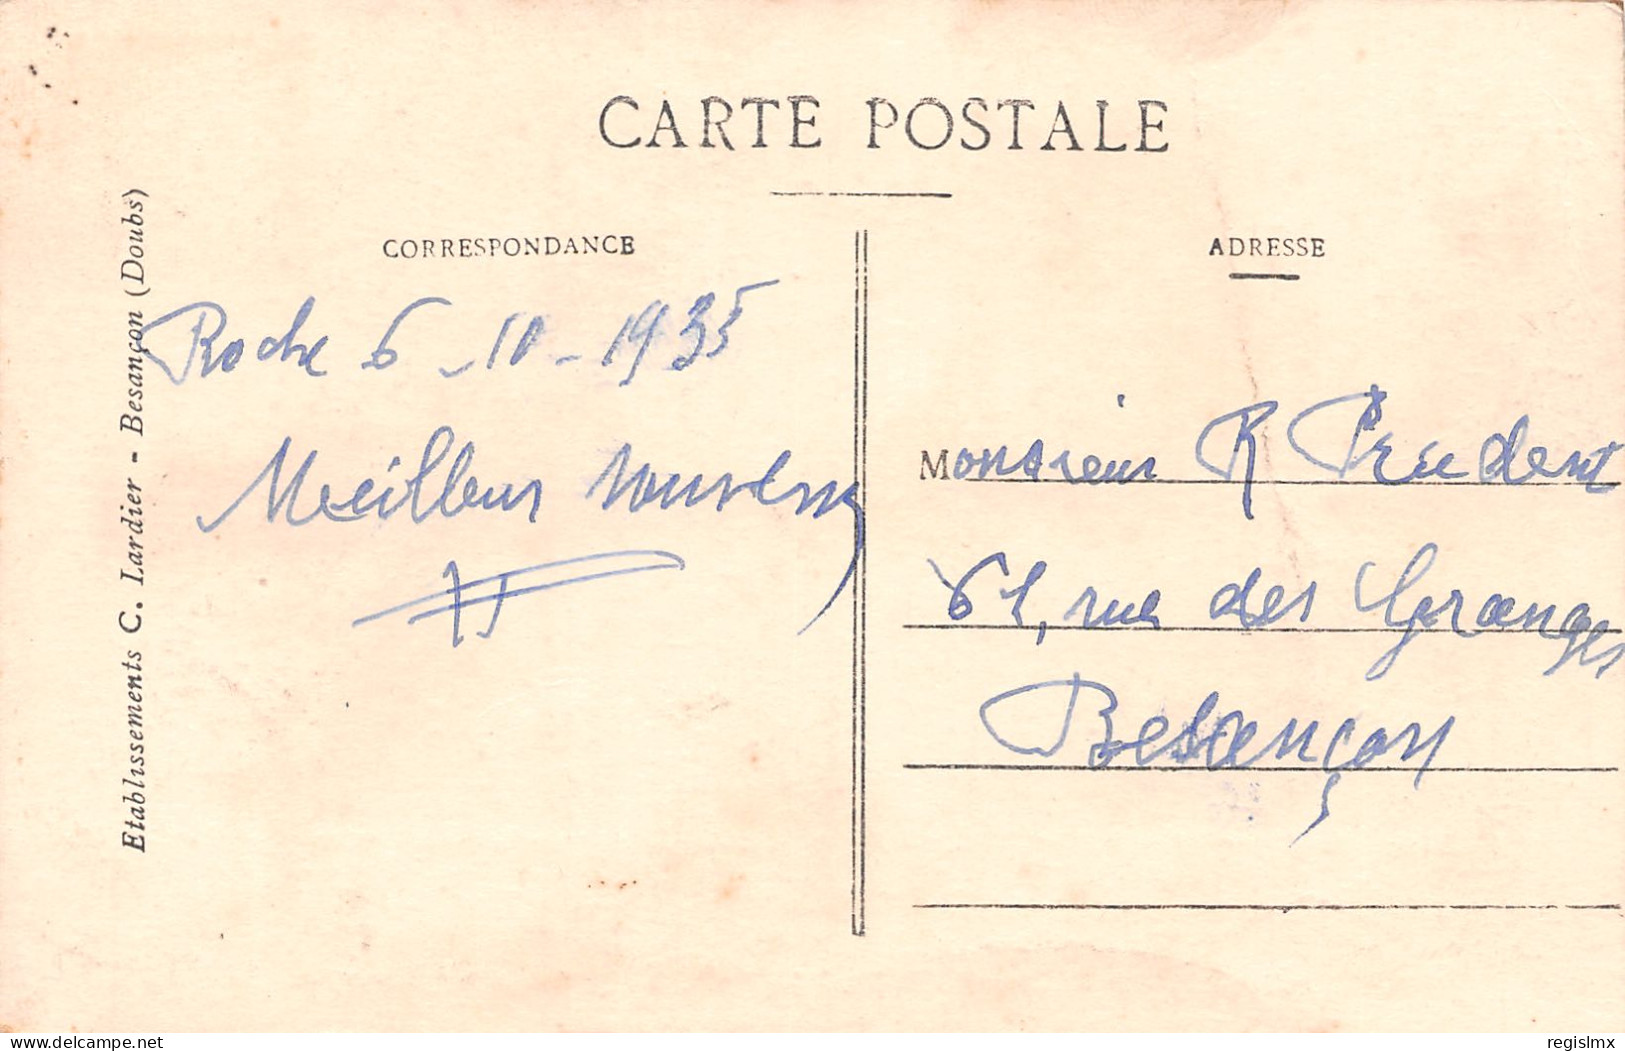 CARTE POSTALE
CORRESPONDANCE
ADRESSE
Etablissements C. Lardier - Besançon (Doubs)
Roche 6-10-1935
Meilleur souvenir
Monsieur R
61, rue des Granges
Besançon
delcampe.net
regislmx